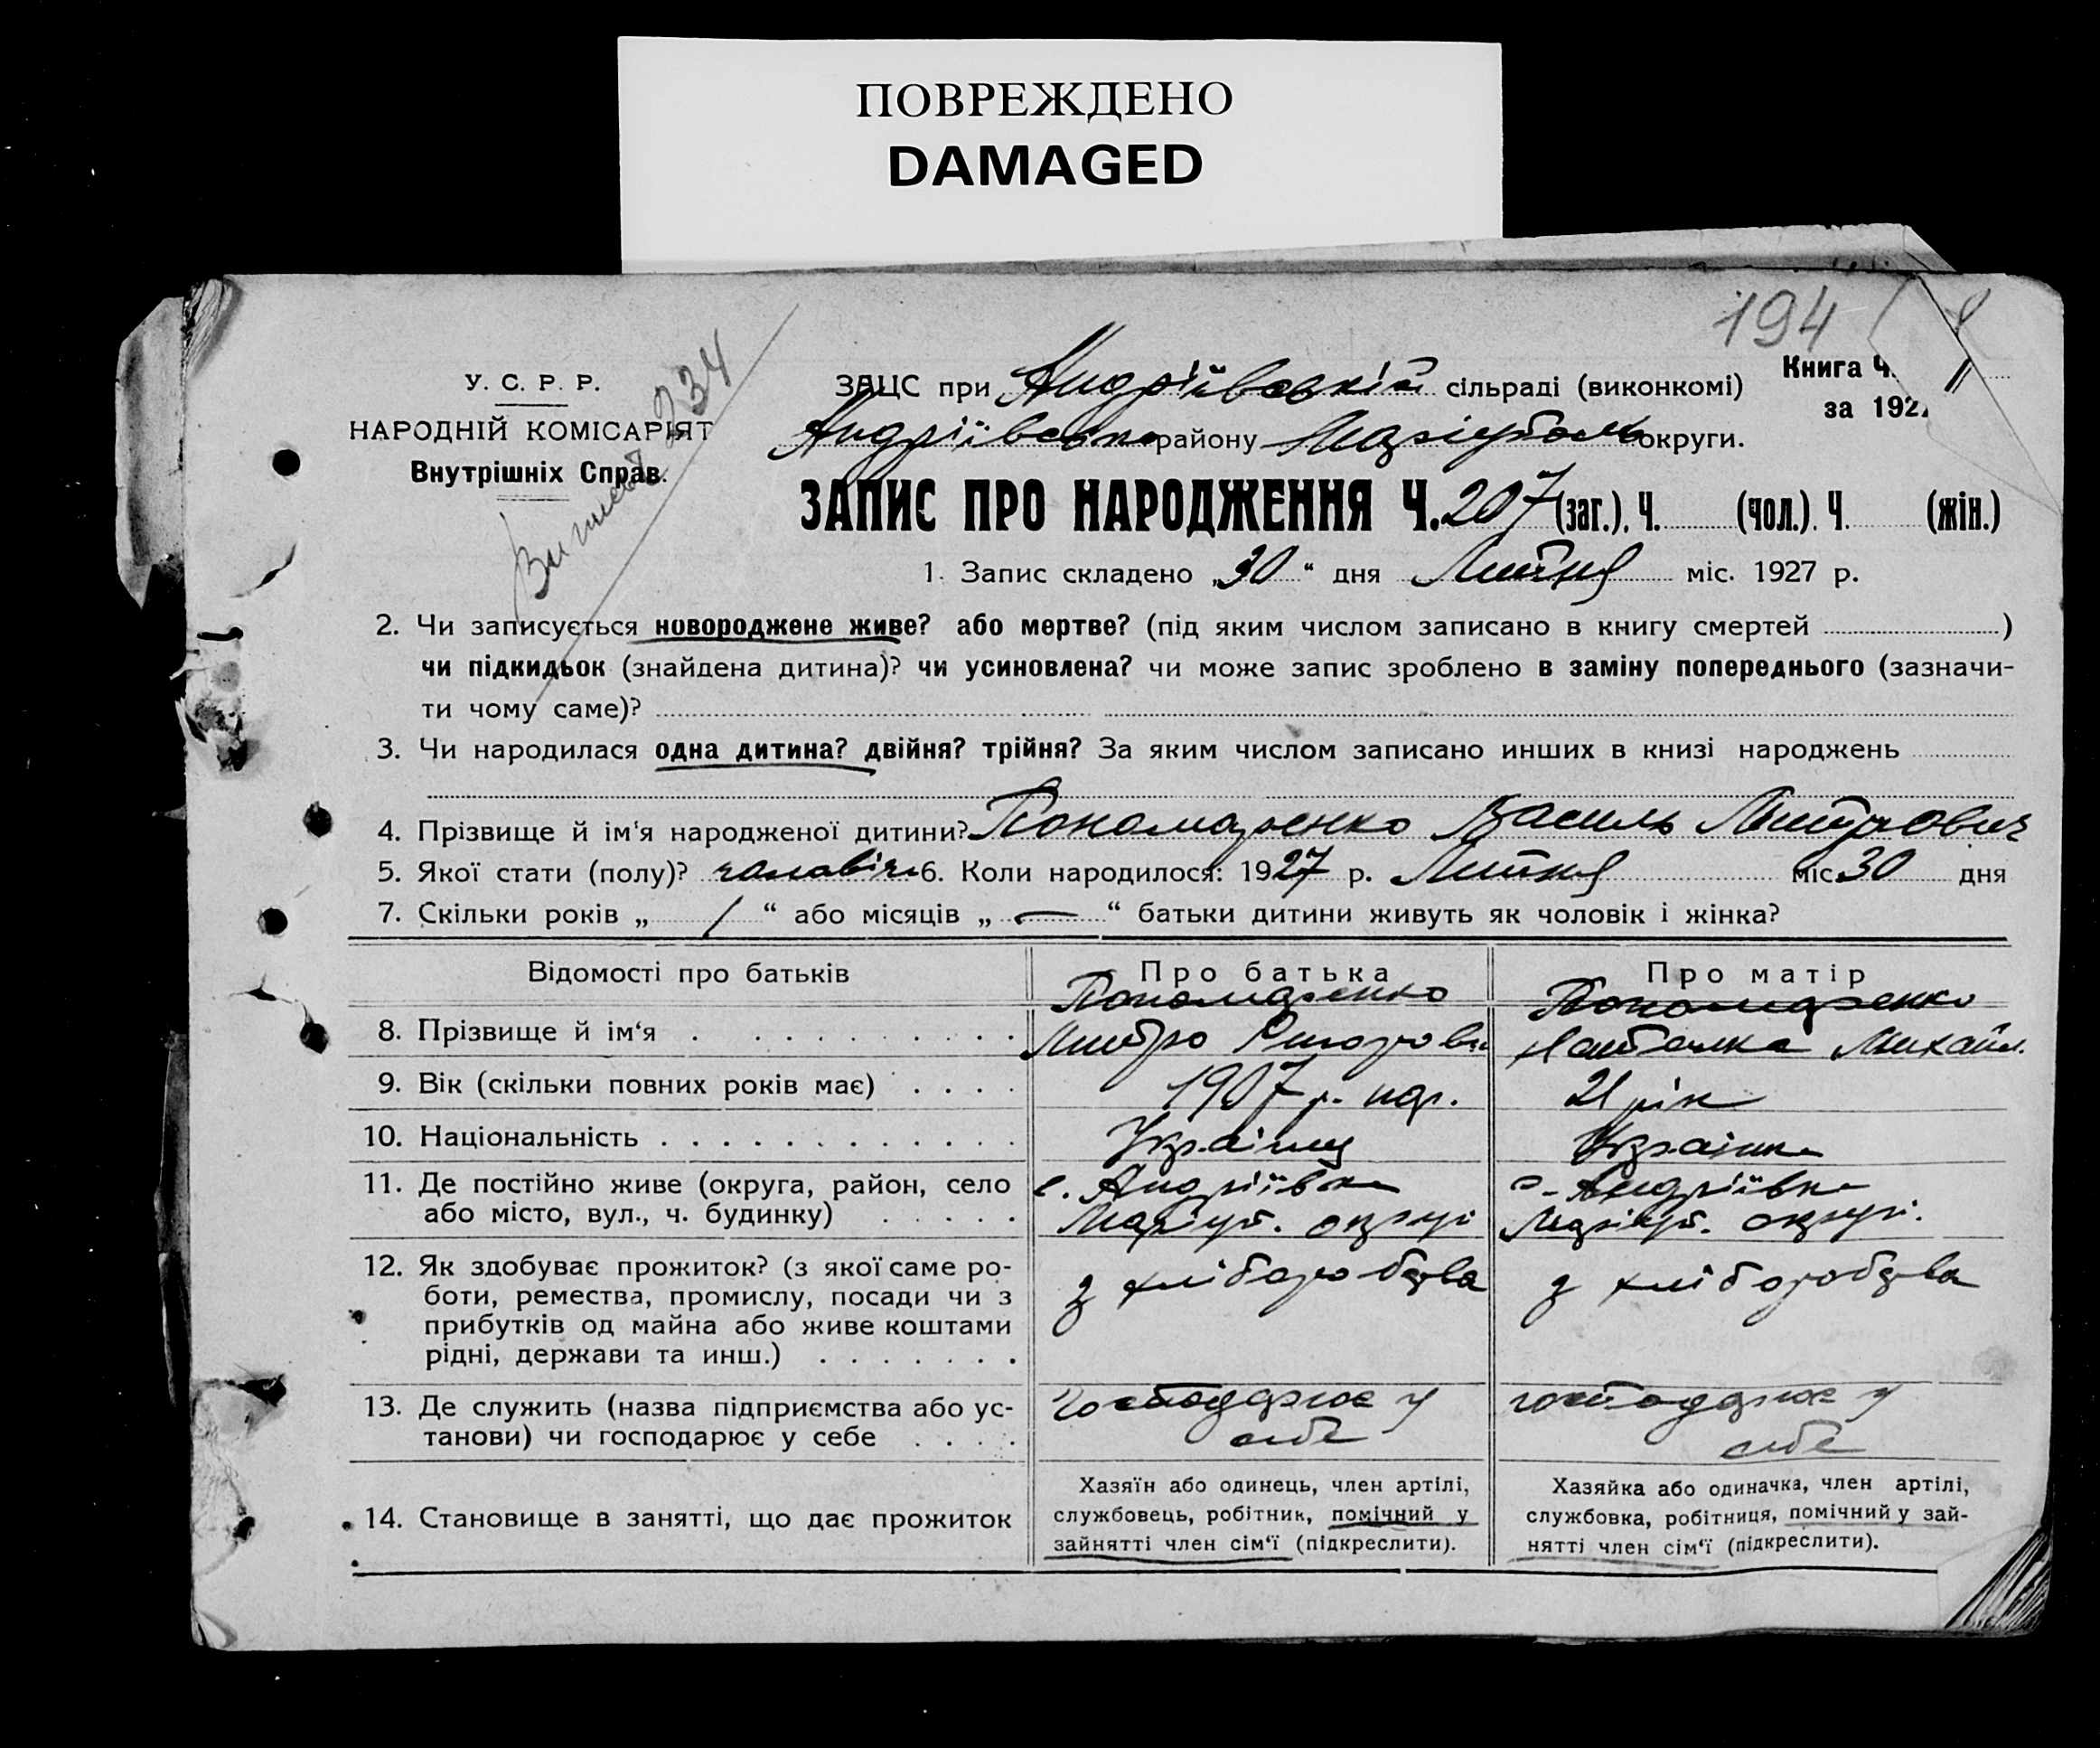 ПОВРЕЖДЕНО
DAMAGED
194
У. С. Р. Р.
НАРОДНІЙ КОМІСАРІЯТ
Внутрішніх Справ.
234
ЗАЦС при Андріївській сільраді (виконкомі)
Книга Ч.
за 192
Андріївськ району Маріуполь округи.
ЗАПИС ПРО НАРОДЖЕННЯ Ч. 207 (заг.). Ч. (чол.). Ч. (жін.)
1. Запис складено „30“ дня Липня міс. 1927 р.
2. Чи записується новороджене живе? або мертве? (під яким числом записано в книгу смертей )
чи підкидьок (знайдена дитина)? чи усиновлена? чи може запис зроблено в заміну попереднього (зазначи-
ти чому саме)?
3. Чи народилася одна дитина? двійня? трійня? За яким числом записано инших в книзі народжень
4. Прізвище й ім'я народженої дитини? Пономаренко Василь Митрович
5. Якої стати (полу)? чоловіч. 6. Коли народилося: 1927 р. Липня міс. 30 дня
7. Скільки років „ / “ або місяців „ — “ батьки дитини живуть як чоловік і жінка?
Відомості про батьків Про батька Про матір
Пономаренко Пономаренко
8. Прізвище й ім‘я Митро Михайл.
9. Вік (скільки повних років має) 1907 р. нар. 21 рік
10. Національність Українц Українка
11. Де постійно живе (округа, район, село с. Андріївка с. Андріївка
або місто, вул., ч. будинку) Маріуп. округі Маріуп. округі.
12. Як здобуває прожиток? (з якої саме ро- з хліборобства з хліборобства
боти, ремества, промислу, посади чи з
прибутків од майна або живе коштами
рідні, держави та инш.)
13. Де служить (назва підприємства або ус- господарює у господарює у
танови) чи господарює у себе себе себе
Хазяїн або одинець, член артілі, Хазяйка або одиначка, член артілі,
14. Становище в занятті, що дає прожиток службовець, робітник, помічний у службовка, робітниця, помічний у зай-
зайнятті член сім‘ї (підкреслити). нятті член сім‘ї (підкреслити).